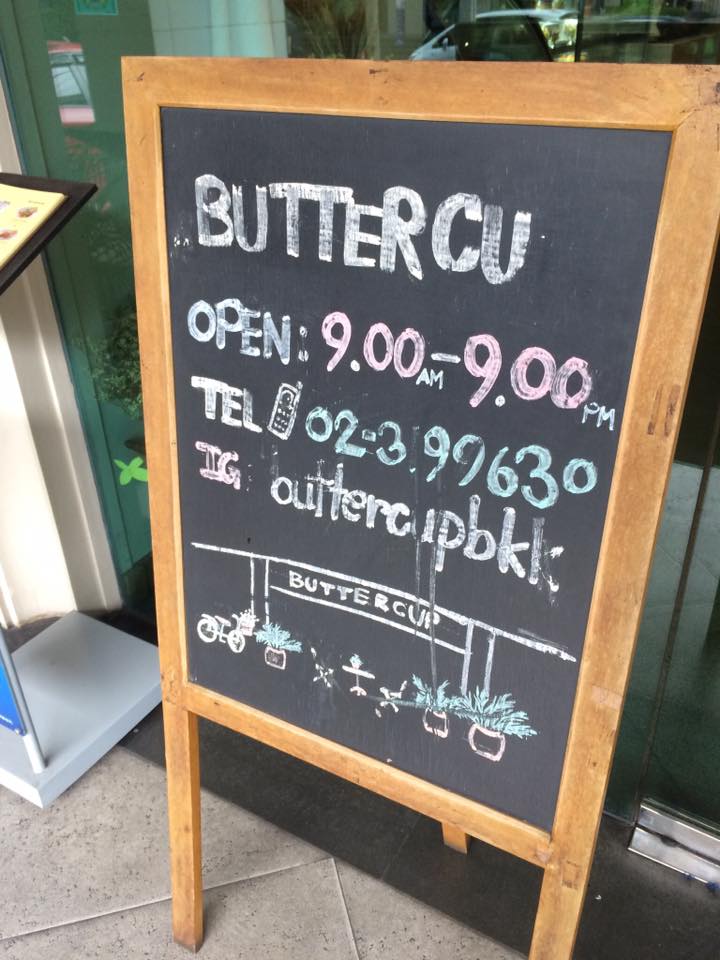 BUTTERCU
OPEN: 9.00AM-9.00PM
TEL 02-3999630
IG buttercupbkk
BUTTERCUP